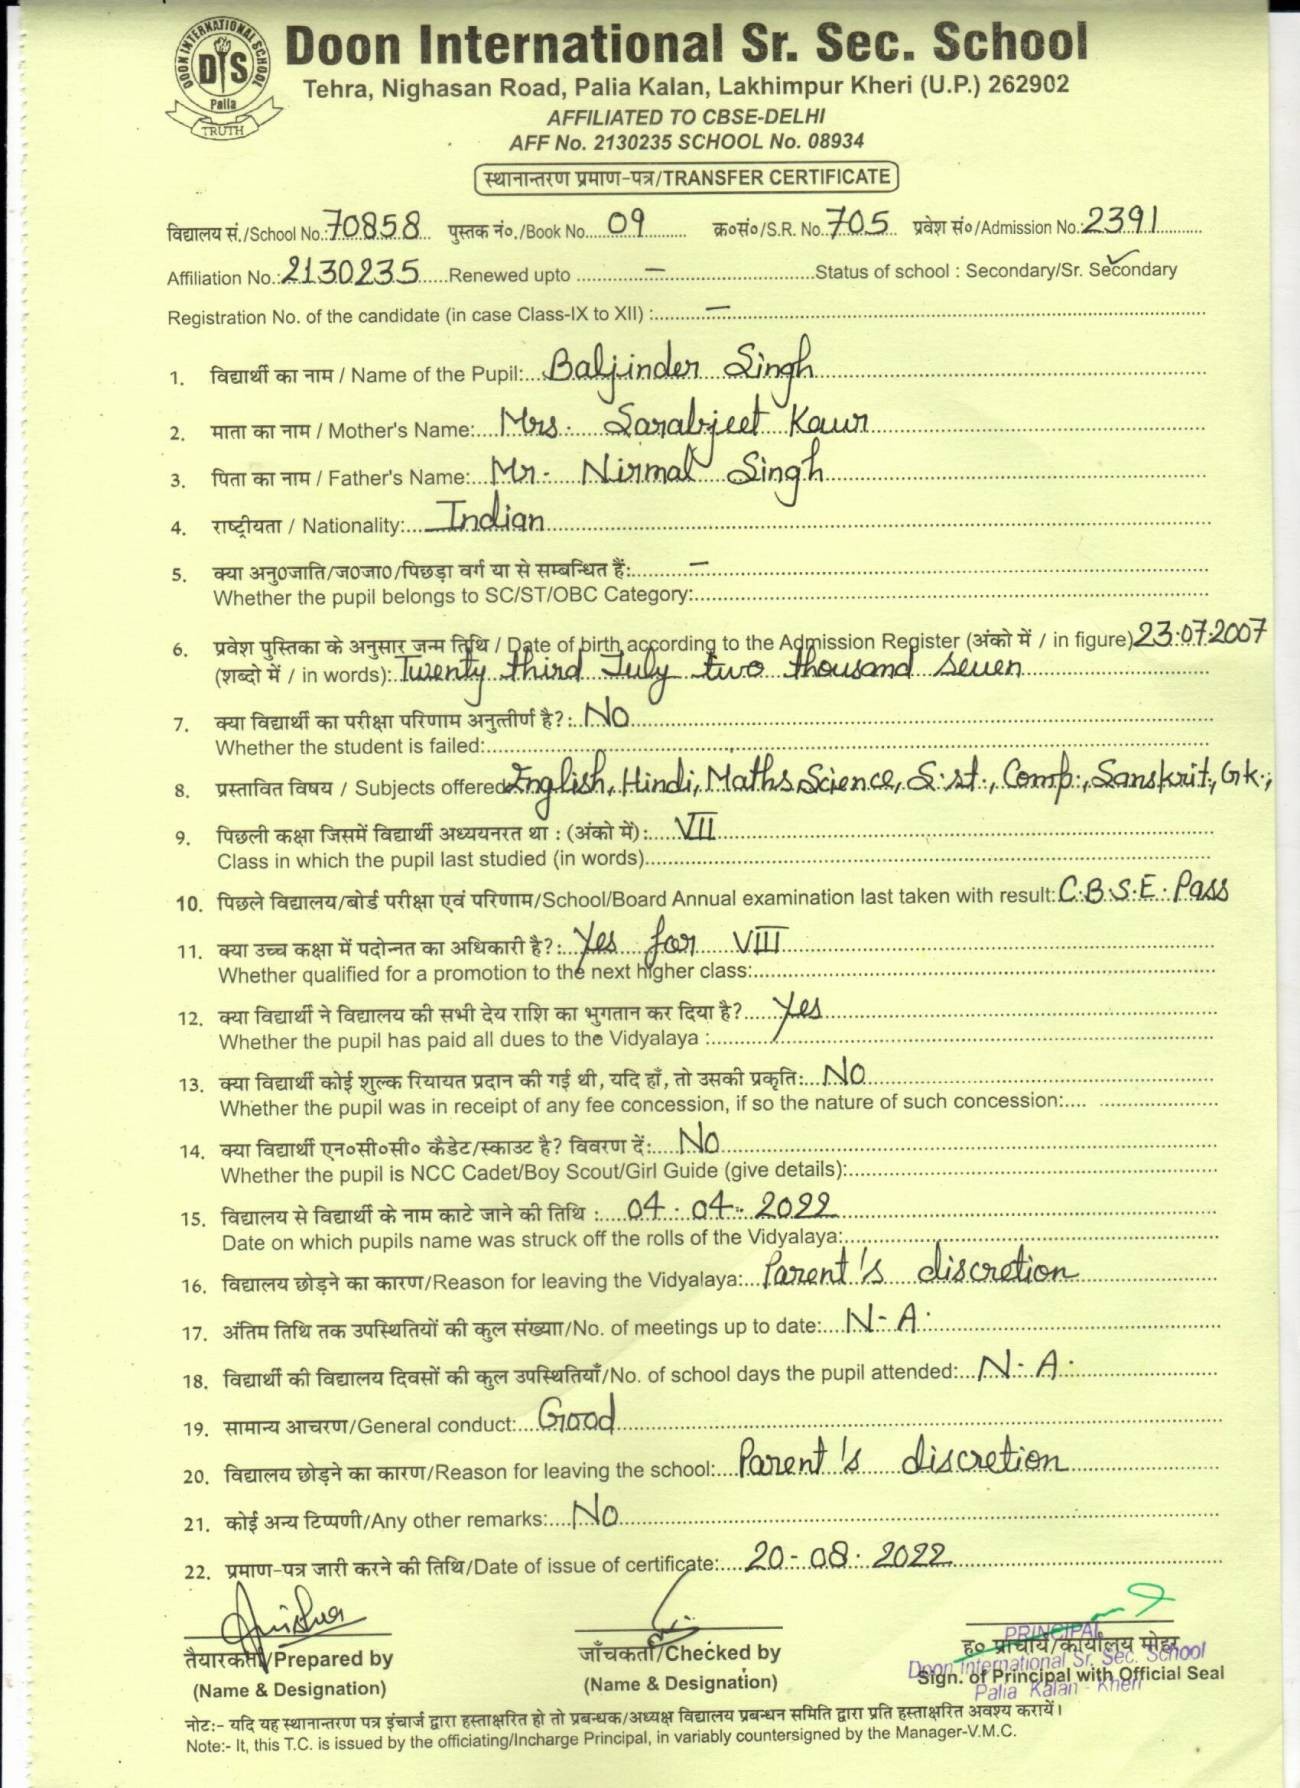 DOON INTERNATIONAL SCHOOL
DIS
Palia
TRUTH
Doon International Sr. Sec. School
Tehra, Nighasan Road, Palia Kalan, Lakhimpur Kheri (U.P.) 262902
AFFILIATED TO CBSE-DELHI
AFF No. 2130235 SCHOOL No. 08934
स्थानान्तरण प्रमाण-पत्र/TRANSFER CERTIFICATE
विद्यालय सं./School No.: 70858 पुस्तक नं०./Book No. 09 क्र०सं०/S.R. No. 705 प्रवेश सं०/Admission No.: 2391
Affiliation No.: 2130235 Renewed upto – Status of school : Secondary/Sr. Secondary
Registration No. of the candidate (in case Class-IX to XII) : –
1. विद्यार्थी का नाम / Name of the Pupil: Baljinder Singh
2. माता का नाम / Mother's Name: Mrs. Sarabjeet Kaur
3. पिता का नाम / Father's Name: Mr. Nirmal Singh
4. राष्ट्रीयता / Nationality: Indian
5. क्या अनु०जाति/ज०जा०/पिछड़ा वर्ग या से सम्बन्धित हैं: –
Whether the pupil belongs to SC/ST/OBC Category:
6. प्रवेश पुस्तिका के अनुसार जन्म तिथि / Date of birth according to the Admission Register (अंको में / in figure) 23.07.2007
(शब्दो में / in words): Twenty third July two thousand seven
7. क्या विद्यार्थी का परीक्षा परिणाम अनुत्तीर्ण है? : No
Whether the student is failed:
8. प्रस्तावित विषय / Subjects offered English, Hindi, Maths, Science, S.st., Comp., Sanskrit, Gk.,
9. पिछली कक्षा जिसमें विद्यार्थी अध्ययनरत था : (अंको में): VII
Class in which the pupil last studied (in words)
10. पिछले विद्यालय/बोर्ड परीक्षा एवं परिणाम/School/Board Annual examination last taken with result: C.B.S.E. Pass
11. क्या उच्च कक्षा में पदोन्नत का अधिकारी है? : Yes for VIII
Whether qualified for a promotion to the next higher class:
12. क्या विद्यार्थी ने विद्यालय की सभी देय राशि का भुगतान कर दिया है? Yes
Whether the pupil has paid all dues to the Vidyalaya :
13. क्या विद्यार्थी कोई शुल्क रियायत प्रदान की गई थी, यदि हाँ, तो उसकी प्रकृति: No
Whether the pupil was in receipt of any fee concession, if so the nature of such concession:
14. क्या विद्यार्थी एन०सी०सी० कैडेट/स्काउट है? विवरण दें: No
Whether the pupil is NCC Cadet/Boy Scout/Girl Guide (give details):
15. विद्यालय से विद्यार्थी के नाम काटे जाने की तिथि : 04.04.2022
Date on which pupils name was struck off the rolls of the Vidyalaya:
16. विद्यालय छोड़ने का कारण/Reason for leaving the Vidyalaya: Parent's discretion
17. अंतिम तिथि तक उपस्थितियों की कुल संख्याा/No. of meetings up to date: N.A.
18. विद्यार्थी की विद्यालय दिवसों की कुल उपस्थितियाँ/No. of school days the pupil attended: N.A.
19. सामान्य आचरण/General conduct: Good
20. विद्यालय छोड़ने का कारण/Reason for leaving the school: Parent's discretion
21. कोई अन्य टिप्पणी/Any other remarks: No
22. प्रमाण-पत्र जारी करने की तिथि/Date of issue of certificate: 20-08.2022
तैयारकर्ता/Prepared by जाँचकर्ता/Checked by ह० प्राचार्य/कार्यालय मोहर
(Name & Designation) (Name & Designation) Sign. of Principal with Official Seal
PRINCIPAL
Doon International Sr. Sec. School
Palia Kalan - Kheri
नोट:- यदि यह स्थानान्तरण पत्र इंचार्ज द्वारा हस्ताक्षरित हो तो प्रबन्धक/अध्यक्ष विद्यालय प्रबन्धन समिति द्वारा प्रति हस्ताक्षरित अवश्य करायें।
Note:- It, this T.C. is issued by the officiating/Incharge Principal, in variably countersigned by the Manager-V.M.C.